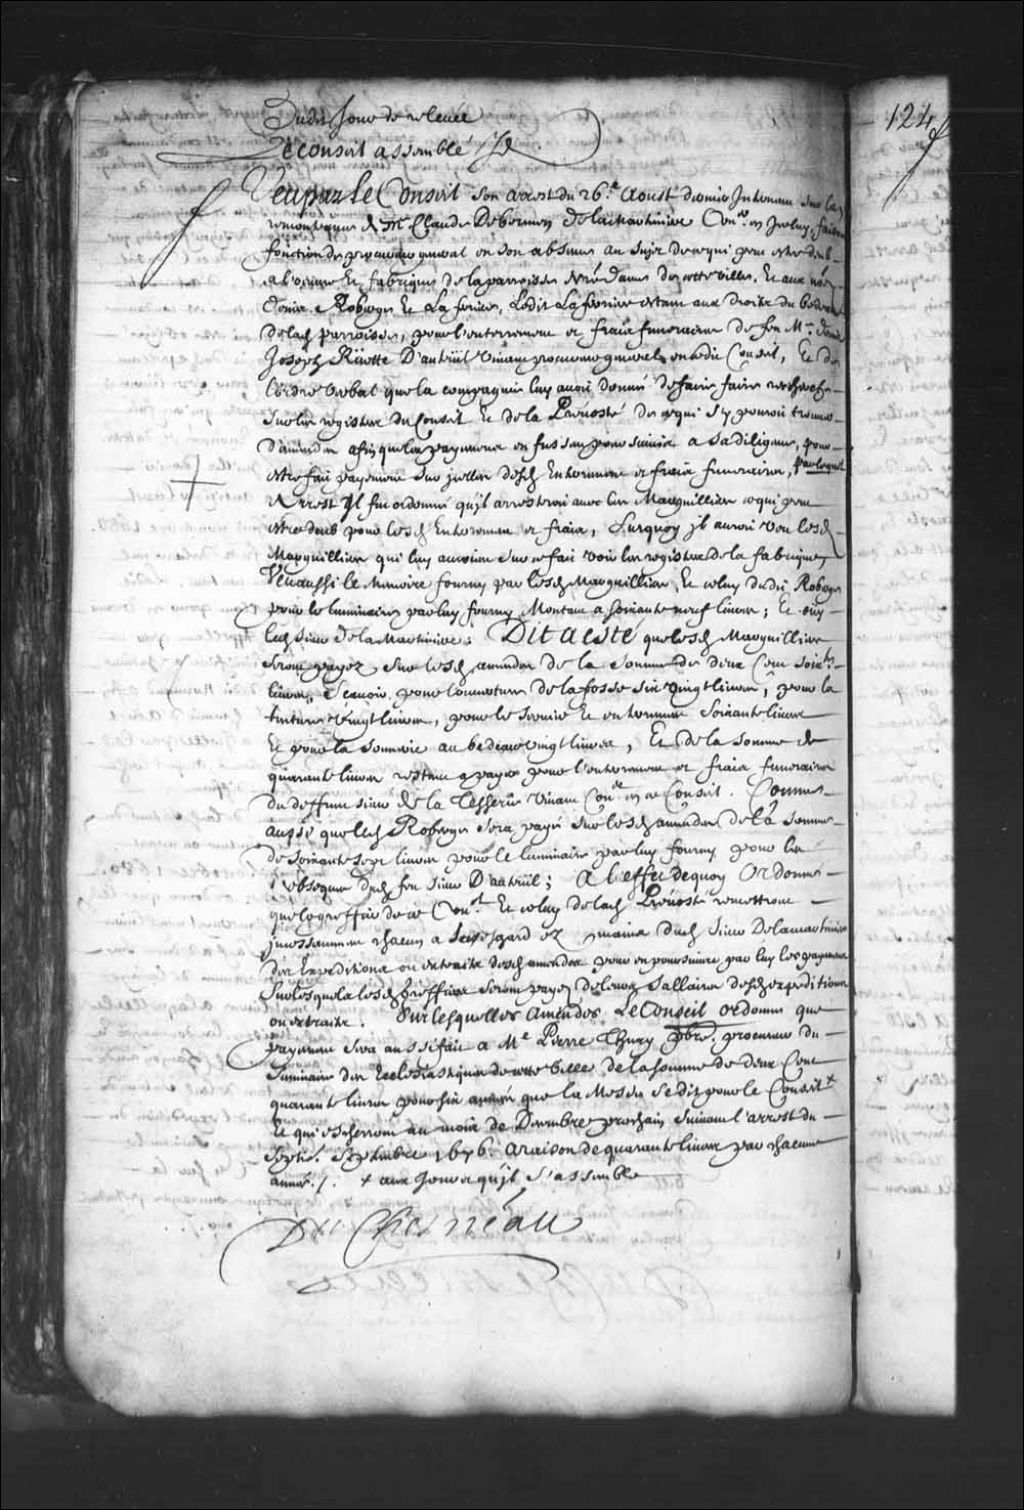 124
Dudit Jour de relevée
Le Conseil assemblé
Veu par le Conseil son arrest du 26.e Aoust dernier Intervenu sur la
remontrance de Me Claude De bermen de la martiniere Con.er en Iceluy, faisant
fonction de procureur general en son absence au sujet de ce qui peut estre deub
a l'oeuvre et fabrique de la parroisse Nre Dame de cette ville, Et aux nommés
Roberge Et La ferriere, Ledit La ferriere estant aux droits du bedeau
de lad. parroisse, pour l'enterrement et fraix funeraires de feu Me denis
Joseph Rüette D'auteüil vivant procureur general en cedit Conseil, Et de
l'ordre verbal que la compagnie luy avoit donné de faire faire recherche
sur les registres du Conseil Et de la Prevosté de ce qui s'y pouroit trouver
d'amendes afin que les payemens en fussent poursuivis a sa diligence, pour
estre fait payement sur icelles desd. Enterrement et fraix funeraires, Par lequel
Arrest Il fut ordonné qu'il arresteroit avec les Marguilliers ce qui peut
estre deub pour lesd. Enterrement et fraix, Surquoy il auroit veu lesd.
Marguilliers qui luy auroient sur ce fait voir les registres de la fabrique,
Veu aussi le memoire fourny par lesd. Marguilliers, Et celuy dudit Roberge
pour le luminaire par luy fourny Montant a soixante neuf livres; Et oüy
led. sieur de la Martiniere: Dit a esté que lesd. Marguilliers
seront payez sur lesd. amendes de la somme de deux Cent soixte
livres, Sçavoir pour l'ouverture de la fosse six vingt livres, pour la
tenture vingt livres, pour le service Et enterrement soixante livres
Et pour la sonnerie au bedeau vingt livres, Et de la somme de
quarante livres restant a payer pour l'enterrement et fraix funeraires
du deffunt sieur de la Tesserie vivant Con.er en ce Conseil. Comme
aussi que led. Roberge sera payé sur lesd. amendes de la somme
de soixante sept livres pour le luminaire par luy fourny pour les
obseques dud. feu sieur D'auteüil; A l'effet dequoy Ordonné
que le greffier de ce Con.el Et celuy de lad. Prevosté remettront
incessamment chacun a son esgard ez mains dud. Sieur De la martiniere
des Expeditions ou extraits desd. amendes pour en poursuivre par luy les payemens
Sur lesquels lesd. Greffiers seront payez de leurs sallaires desd. expeditions
ou extraits. Sur lesquelles Amendes Le Conseil ordonne que
payement sera aussi fait a Me Pierre Thury pbre. procureur du
Seminaire des Ecclesiastiques de cette Ville de la somme de deux Cent
quarante livres pour six années que la Messe se dit pour le Conseil +
Et qui escherront au mois de Decembre prochain suivant l'arrest du
Septe. Septembre 1676. a raison de quarante livres par chacune
année ./. + aux Jours qu'il s'assemble
Du Chesneau